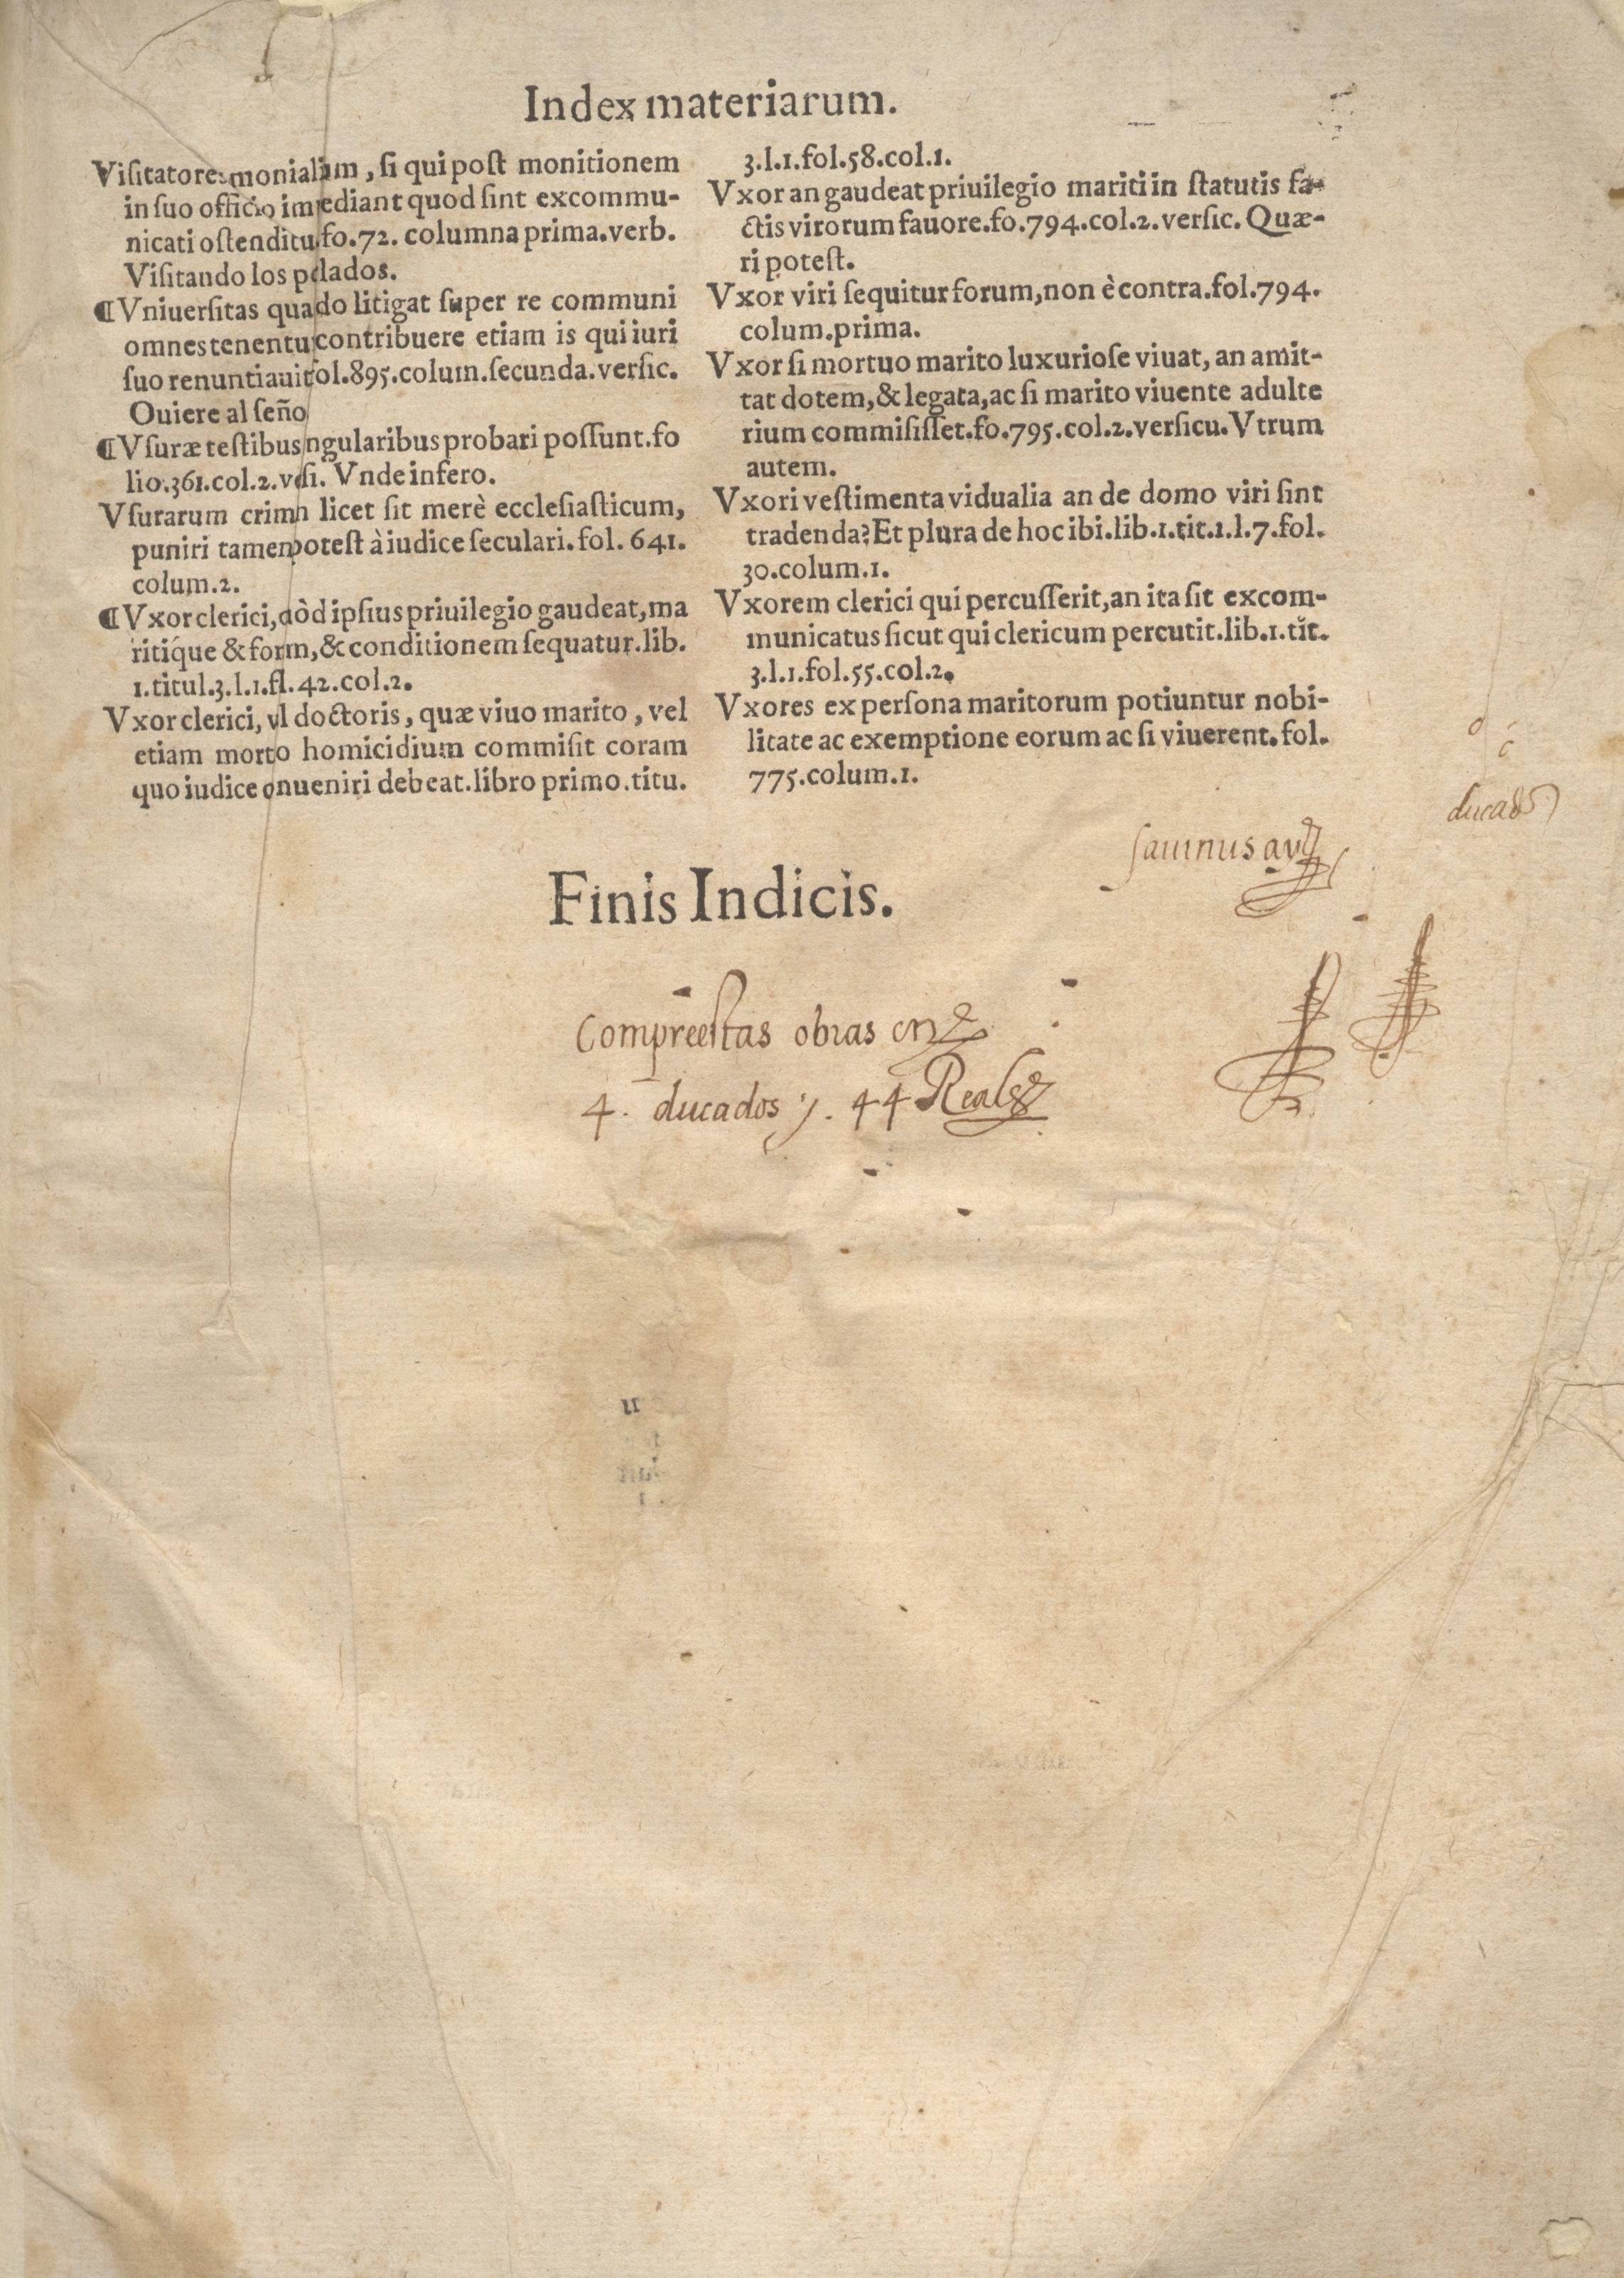 Index materiarum.
Visitatores monialium, si qui post monitionem
in suo officio impediant quod sint excommu-
nicati ostenditu. fo. 72. columna prima. verb.
Visitando los pelados.
¶ Vniuersitas quado litigat super re communi
omnes tenentu contribuere etiam is qui iuri
suo renuntiauit fol. 895. colum. secunda. versic.
Ouiere al seño
¶ Vsuræ testibus ngularibus probari possunt. fo
lio. 361. col. 2. vesi. Vnde infero.
Vsurarum crimn licet sit merè ecclesiasticum,
puniri tamen potest à iudice seculari. fol. 641.
colum. 2.
¶ Vxor clerici, qòd ipsius priuilegio gaudeat, ma
ritíque & form, & conditionem sequatur. lib.
1. titul. 3. l. 1. fl. 42. col. 2.
Vxor clerici, vl doctoris, quæ viuo marito, vel
etiam morto homicidium commisit coram
quo iudice onueniri debeat. libro primo. titu.
3. l. 1. fol. 58. col. 1.
Vxor an gaudeat priuilegio mariti in statutis fa-
ctis virorum fauore. fo. 794. col. 2. versic. Quæ-
ri potest.
Vxor viri sequitur forum, non è contra. fol. 794.
colum. prima.
Vxor si mortuo marito luxuriose viuat, an amit-
tat dotem, & legata, ac si marito viuente adulte
rium commisisset. fo. 795. col. 2. versicu. Vtrum
autem.
Vxori vestimenta vidualia an de domo viri sint
tradenda? Et plura de hoc ibi. lib. 1. tit. 1. l. 7. fol.
30. colum. 1.
Vxorem clerici qui percusserit, an ita sit excom-
municatus sicut qui clericum percutit. lib. 1. tit.
3. l. 1. fol. 55. col. 2.
Vxores ex persona maritorum potiuntur nobi-
litate ac exemptione eorum ac si viuerent. fol.
775. colum. 1.
ducados
Finis Indicis.
Compre estas obras en
4. ducados y. 44 Reales